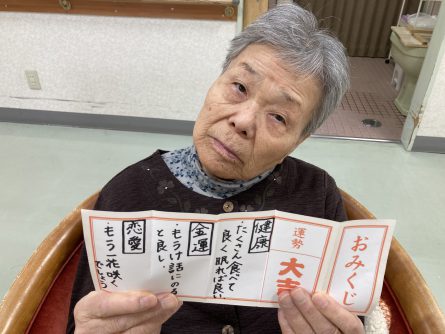 おみくじ
運勢
大吉
健康
・たくさん食べて
良く眠れば良い
金運
・もうけ話にのる
と良し。
恋愛
・もう一花咲く
でしょう